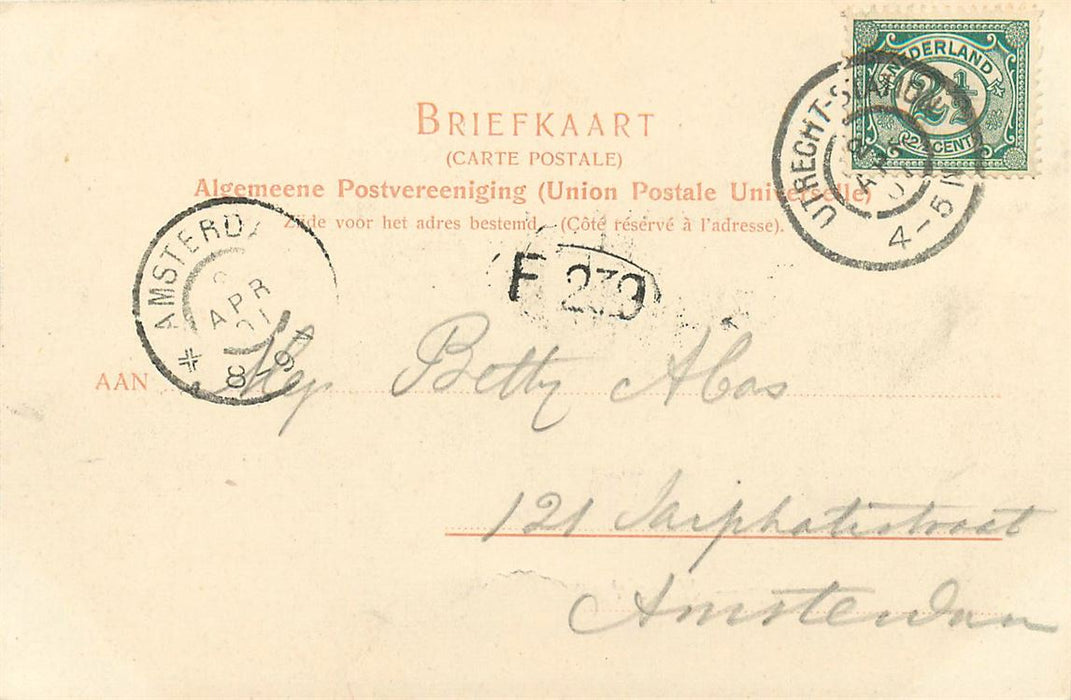 NEDERLAND
2½
2½ CENT
UTRECHT-STATION
APR
4-5N
BRIEFKAART
(CARTE POSTALE)
Algemeene Postvereeniging (Union Postale Universelle)
Zijde voor het adres bestemd. (Côté réservé à l'adresse).
AMSTERDA
APR
01
8-9
F 239
AAN Mej Betty Abas
121 Sarphatistraat
Amsterdam